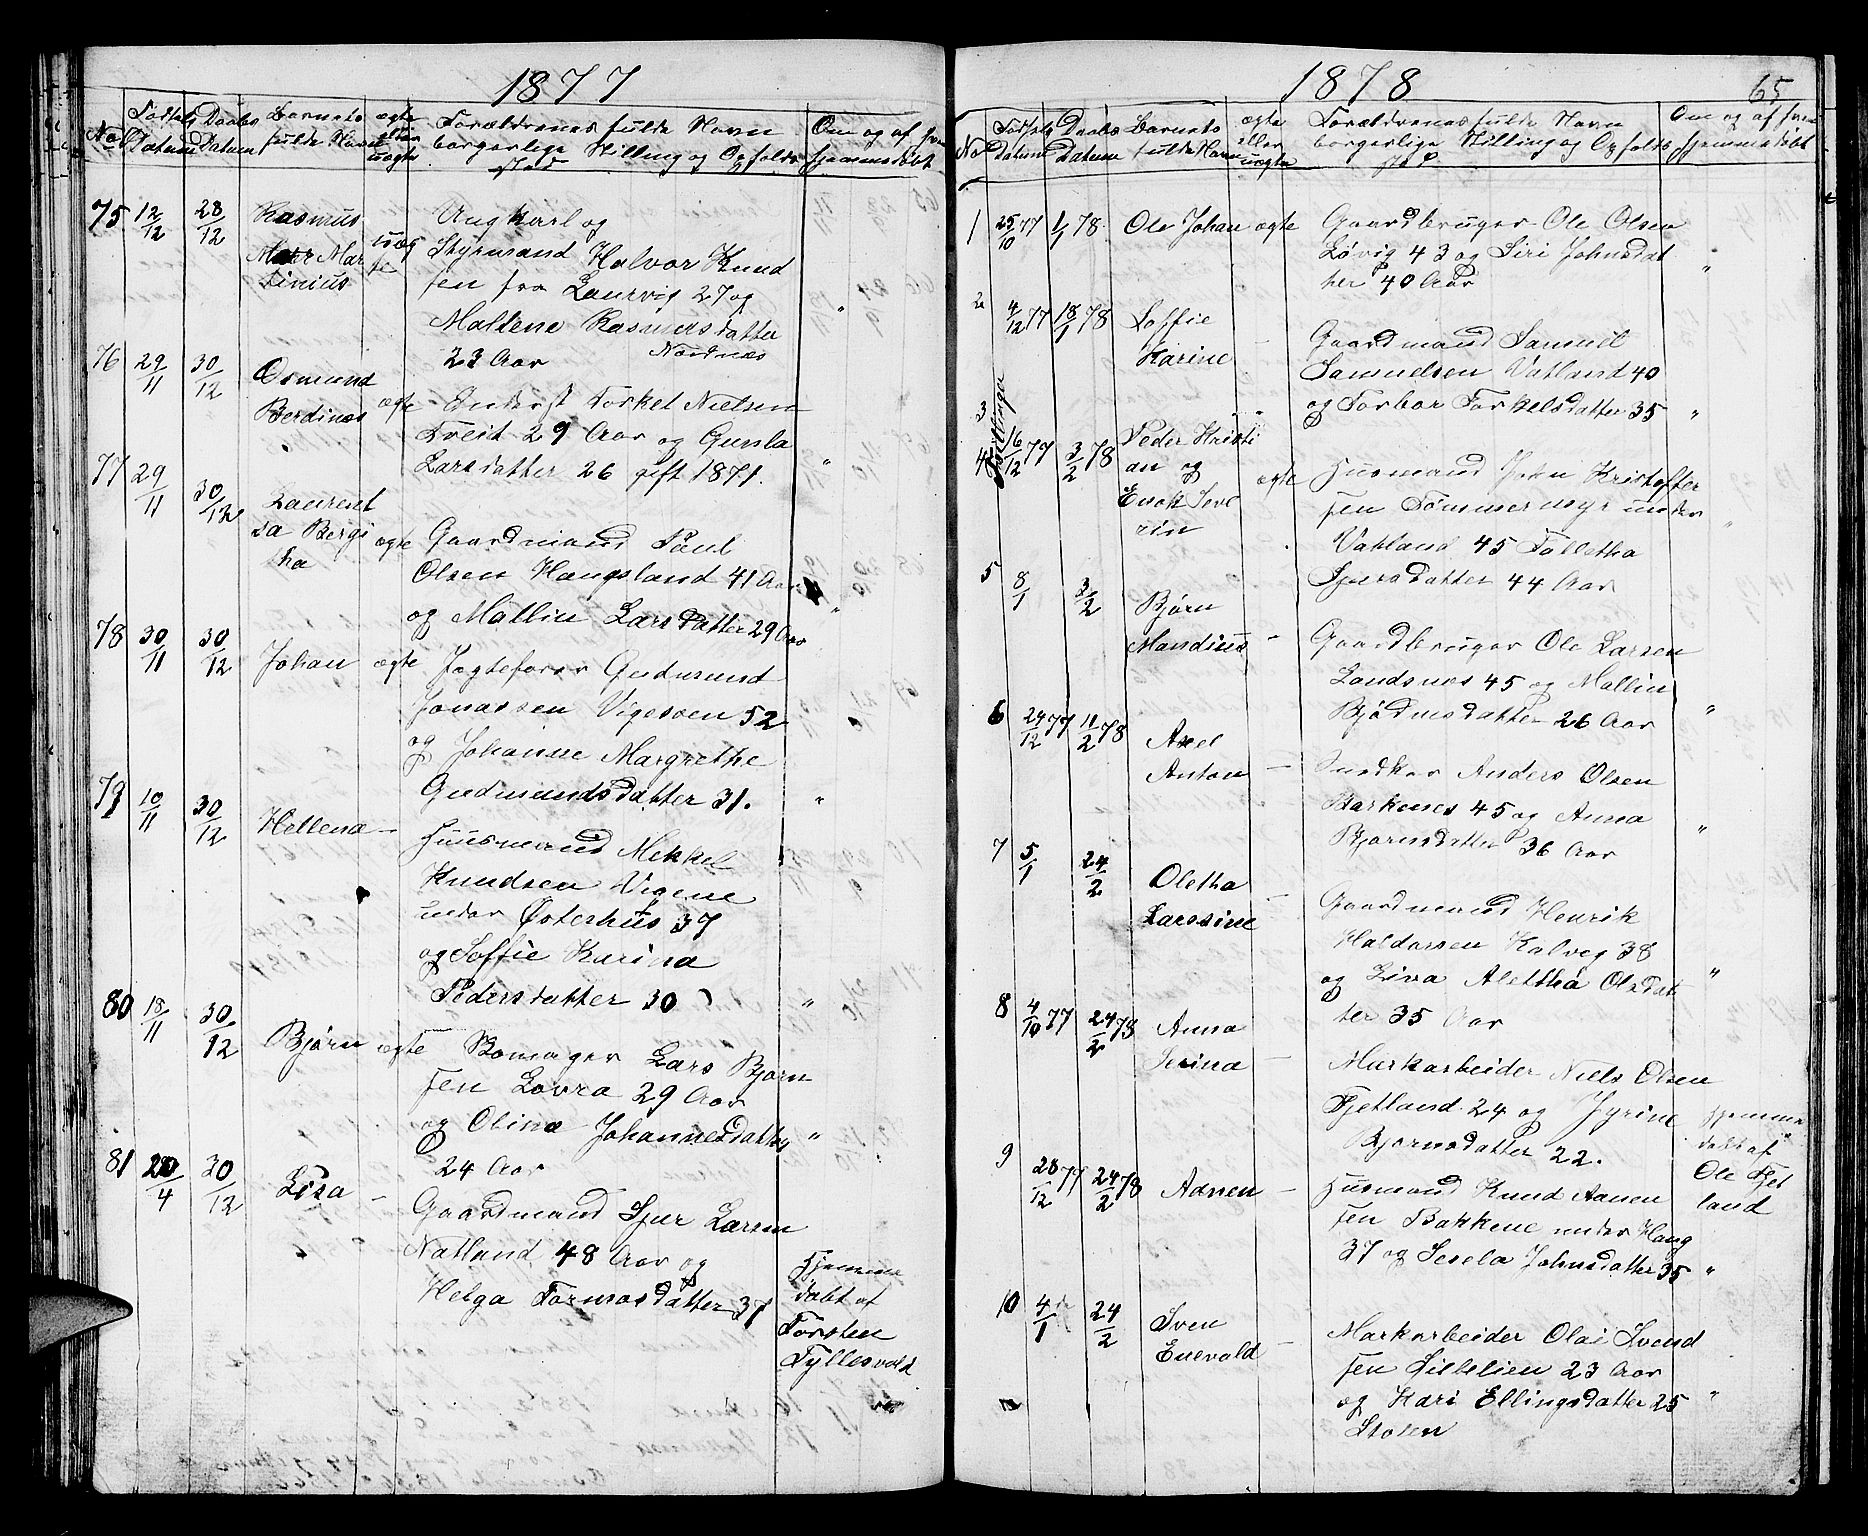 1877
No
Fødsels
Datum
Daabs
Datum
Barnets
fulde Navn
ægte
eller
uægte
Forældrenes fulde Navn
borgerlige Stilling og Opholds
sted
Om og af hvem
hjemmedøbt
75 12/12 28/12 Rasmus
Mar
tinius
uæg
te
Ungkarl og
Styrmand Halvor Knud
sen fra Laurvig 27 og
Mallene Rasmusdatter
23 Aar Nordnæs "
76 29/11 30/12 Osmund
Berdines
ægte
Enderst Torkel Nielsen
Tveit 29 Aar og Gunla
Larsdatter 26 gift 1871. "
77 29/11 30/12 Laurent
sa Bergi
tha
ægte
Gaardmand Poul
Olsen Haugsland 41 Aar
og Mallin Larsdatter 29 Aar "
78 30/11 30/12 Johan ægte
Jagtefører Gudmund
Jonassen Vigesoen 52
og Johanne Margrethe
Gudmundsdatter 31. "
79 10/11 30/12 Hellena –
Huusmand Mekkel
Knudsen Vigene
under Østerhus 37
og Soffie Karina
Pedersdatter 30 "
80 18/11 30/12 Bjørn ægte
Bomager Lars Bjørn
sen Lovra 29 Aar
og Olina Johannesdatter "
24 Aar
81 20/4 30/12 Lisa –
Gaardmand Sjur Larsen
Natland 48 Aar og
Helga Tormosdatter 37
Hjemme
døbt af
Torsten
Tyllesvold
1878
65
No
Fødsels
datum
Daabs
Datum
Barnets
fulde Navn
ægte
eller
uægte
Forældrenes fulde Navn
borgerlige Stilling og Opholds
sted
Om og af hvem
hjemmedøbt
1 25/10 77 1/1 78. Ole Johan ægte
Gaardbruger Ole Olsen
Løvig 43 og Siri Johnsdat
ter 40 Aar "
2 4/12 77 18/1 78 Soffie
Karine –
Gaardmand Samuel
Samuelsen Vatland 40
og Torbor Torkelsdatter 35 "
3
4 Tvillinger 16/12 77 3/2 78 Peder Kristi
an og
Enok Seve
rin
ægte
Husmand John Kristoffer
sen Tømmermyr under
Vatland 45 Talletha
Sjursdatter 44 Aar "
5 8/1 3/2 Bjørn
Mandius –
Gaardbruger Ole Larsen
Landsnes 45 og Mallin
Bjødnsdatter 26 Aar "
6 24/12 77 11/2 78 Axel
Anton –
Anders Olsen
Barkenes 45 og Anna
Bjørnsdatter 36 Aar "
7 5/1 24/2 Oletha
Larssine –
Gaardmand Henrik
Haldorsen Kalveg 38
og Liva Alettha Olsdat
ter 35 Aar "
8 4/10 77 24/2 78 Anna
Serina –
Markarbeider Niels Olsen
Fjetland 24 og Jyrine
Bjørnsdatter 22.
Hjemme
døbt af
Ole Fjet
land
9 28/12 77 24/2 78 Adnen –
Husmand Knud Aanen
sen Bakkene under Haug
37 og Sesela Johnsdatter 35 "
10 4/1 24/2 Sven
Enevald –
Markarbeider Olai Svend
sen Lillelien 23 Aar
og Kari Ellingsdatter 25 "
Stolen